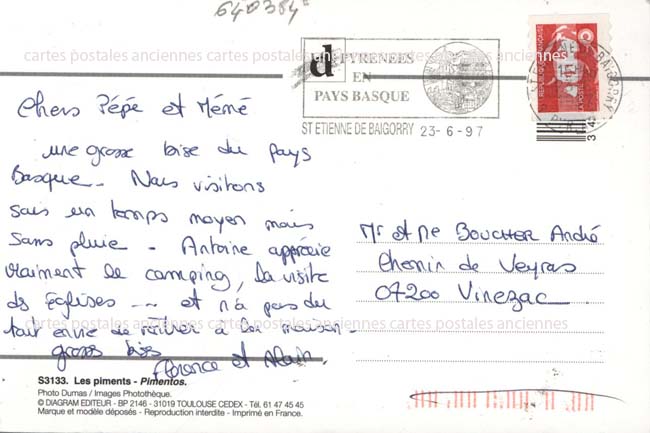 640384
cartes postales anciennes cartes postales anciennes cartes postales anciennes
d PYRENEES
EN
PAYS BASQUE
ST ETIENNE DE BAIGORRY 23-6-97
REPUBLIQUE FRANÇAISE
Chers Pépé et Mémé
une grosse bise du Pays
Basque - Nous visitons
sous un temps moyen mais
sans pluie - Antoine apprécie
vraiment le camping, la visite
des églises -- et n'a pas du
tout envie de rentrer à la maison -
grosses bises
Florence et Alain
Mr et Me BOUCHER André
Chemin de Veyras
07200 Vinezac
cartes postales anciennes cartes postales anciennes cartes postales anciennes
S3133. Les piments - Pimentos.
Photo Dumas / Images Photothèque.
© DIAGRAM EDITEUR - BP 2146 - 31019 TOULOUSE CEDEX - Tél. 61 47 45 45
Marque et modèle déposés - Reproduction interdite - Imprimé en France.